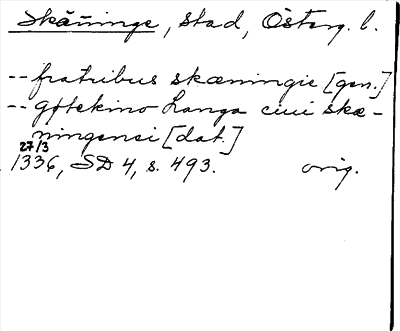 Skäninge, stad, Österg. l.
-- fratribus skæningie [gen.]
-- gøtekino Langa ciui skæ-
ningensi [dat.]
27/3
1336, SD 4, s. 493. orig.